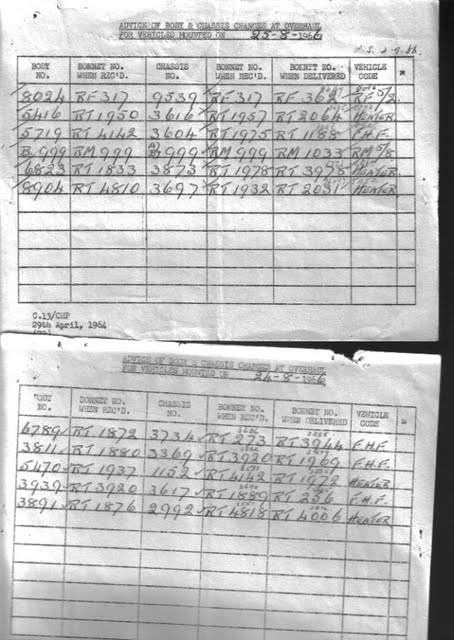 ADVICE OF BODY & CHASSIS CHANGES AT OVERHAUL
FOR VEHICLES MOUNTED ON 25-8-1966
BODY NO. BONNET NO. WHEN REC'D. CHASSIS NO. BONNET NO. WHEN REC'D. BONNET NO. WHEN DELIVERED VEHICLE CODE
8024 RF 317 9539 RF 317 RF 362 RF 5/2
5416 RT 1950 3616 RT 1957 RT 2064 HEATER
5719 RT 4142 3604 RT 1975 RT 1188 F.H.F.
B.999 RM 999 999 RM 999 RM 1033 RM 5/8
6823 RT 1833 3873 RT 1978 RT 3978 HEATER
8904 RT 4810 3697 RT 1932 RT 2031 HEATER
C.13/CHP
29th April, 1964
ADVICE OF BODY & CHASSIS CHANGES AT OVERHAUL
FOR VEHICLES MOUNTED ON 24-8-1966
BODY NO. BONNET NO. WHEN REC'D. CHASSIS NO. BONNET NO. WHEN REC'D. BONNET NO. WHEN DELIVERED VEHICLE CODE
6789 RT 1872 3734 RT 273 RT 3944 F.H.F.
3811 RT 1880 3369 RT 3920 RT 1969 F.H.F.
5470 RT 1937 1152 RT 4142 RT 1972 HEATER
3939 RT 3920 3617 RT 1889 RT 256 F.H.F.
3891 RT 1876 2992 RT 4818 RT 4006 HEATER